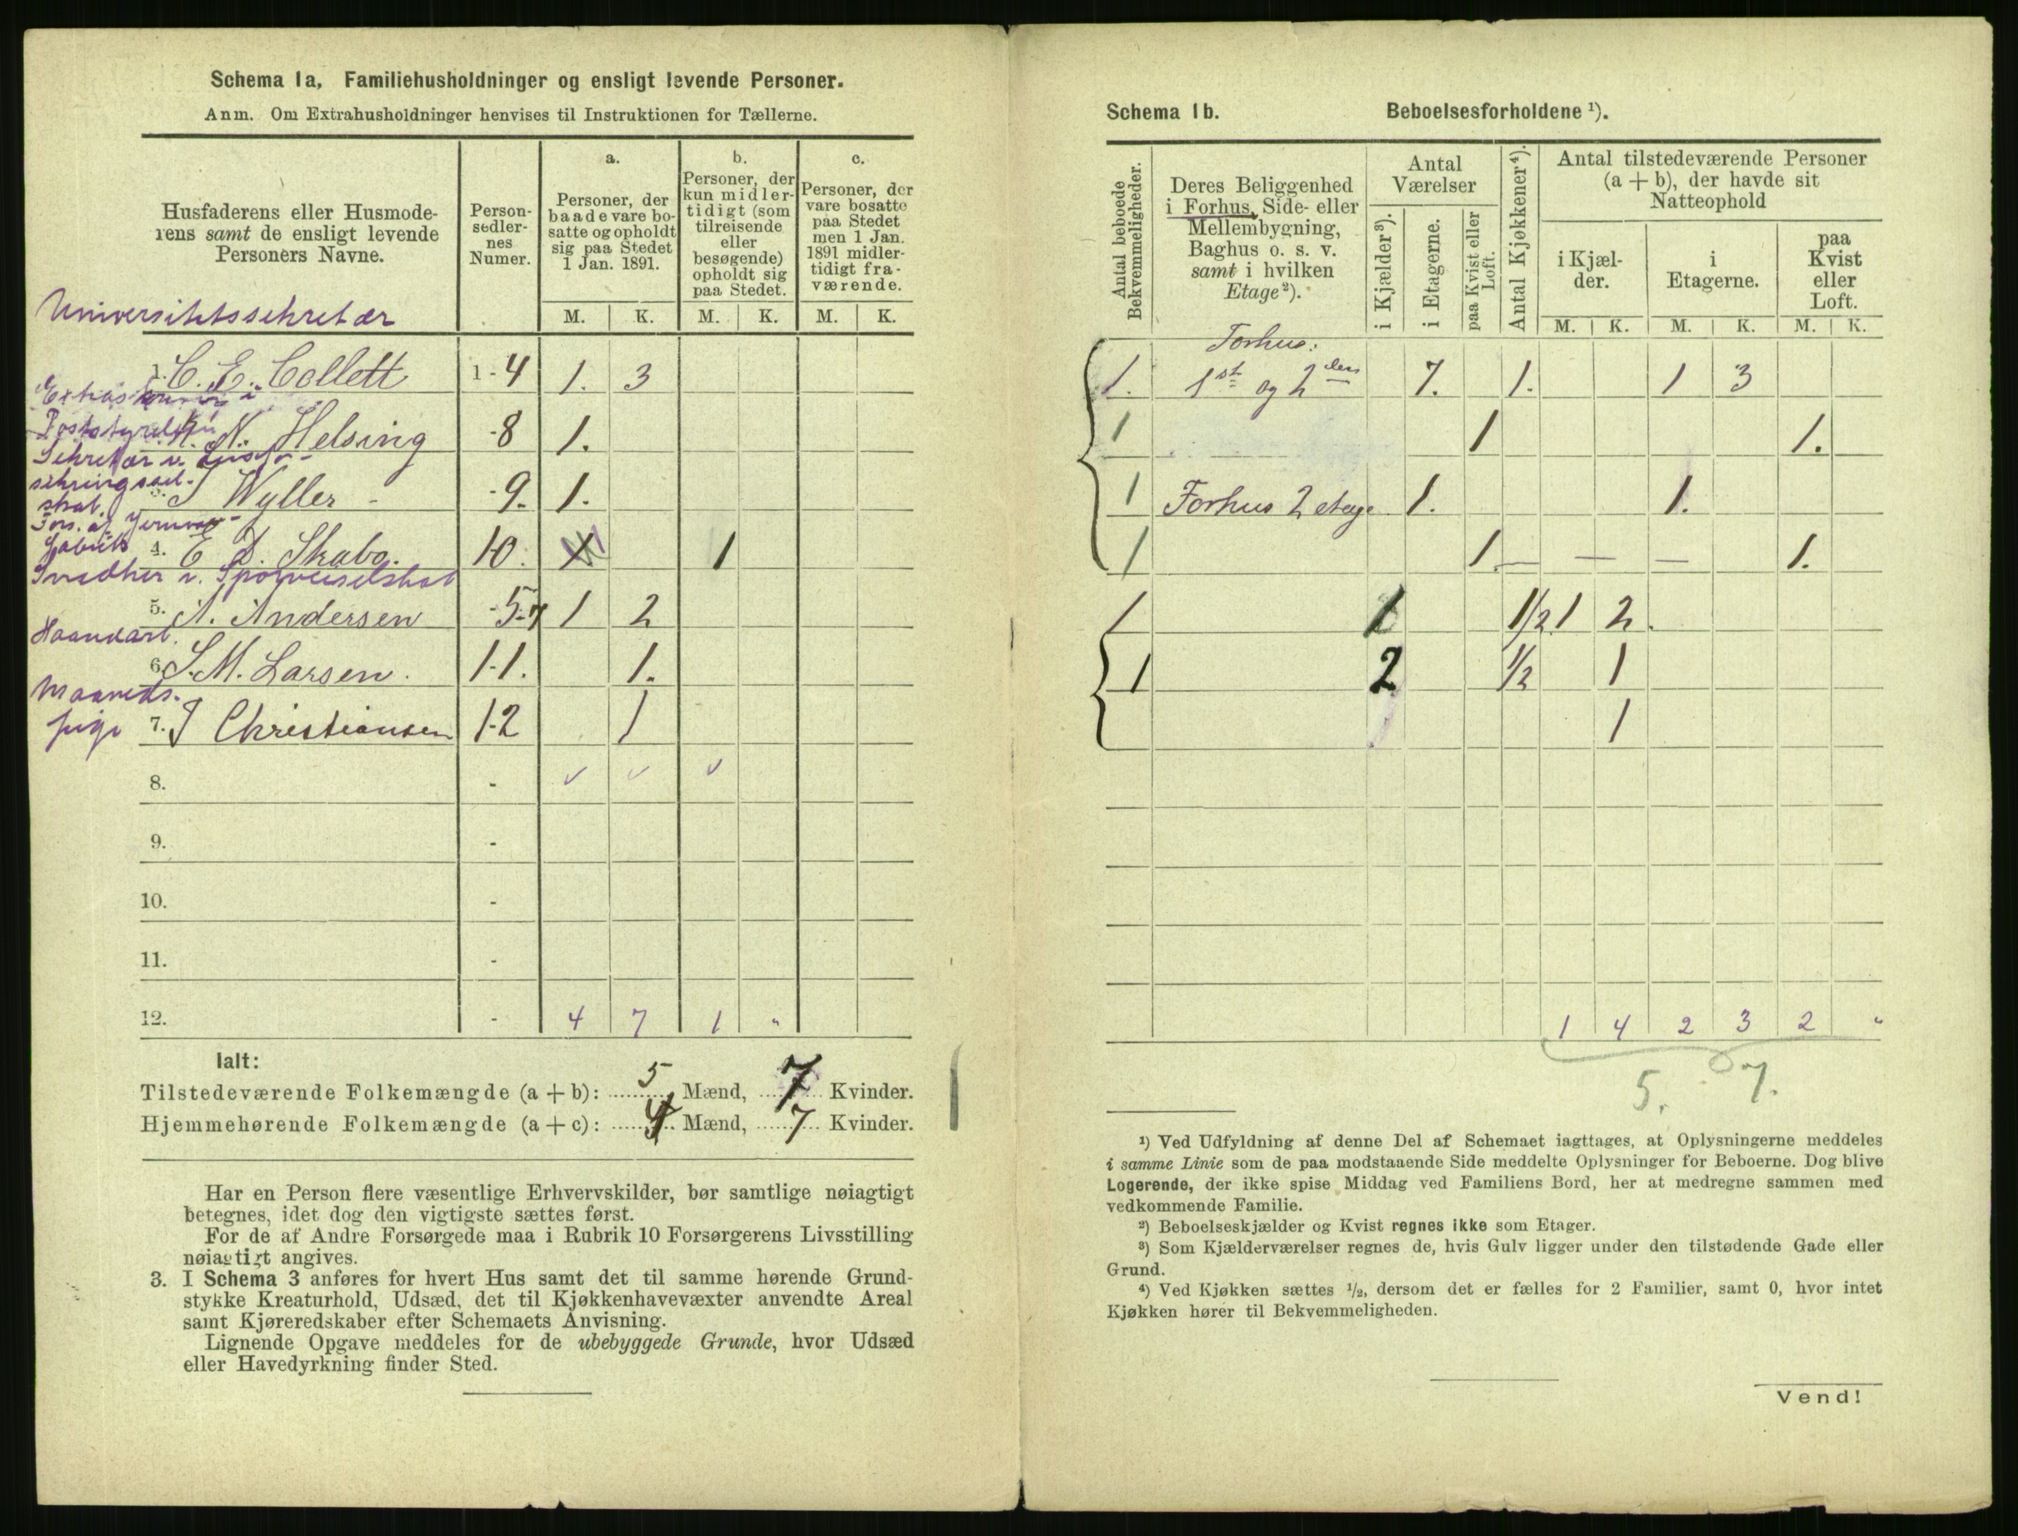 Schema 1a, Familiehusholdninger og ensligt levende Personer.
Anm. Om Extrahusholdninger henvises til Instruktionen for Tællerne.
Husfaderens eller Husmode-
rens samt de ensligt levende
Personers Navne.
Person-
sedler-
nes
Numer.
a.
Personer, der
baade vare bo-
satte og opholdt
sig paa Stedet
1 Jan. 1891.
b.
Personer, der
kun midler-
tidigt (som
tilreisende
eller
besøgende)
opholdt sig
paa Stedet.
c.
Personer, der
vare bosatte
paa Stedet
men 1 Jan.
1891 midler-
tidigt fra-
værende.
M. K. M. K. M. K.
Universitetssekretær
1. C. E. Collett 1-4 1. 3
N. Helsing -8 1.
Sekretær v.
sikringssel-
skab.
3. J Wyller -9. 1.
4. E D. Skabo. 10. 1
v. Sporveiselskab
5. A. Andersen -5-7 1 2
Haandarb.
6. S. M. Larsen. 1-1. 1.
Maaneds-
pige
7. J Christiansen 1-2 1
8. - v v v
9. -
10. -
11. -
12. - 4 7 1 "
Ialt:
Tilstedeværende Folkemængde (a + b): 5 Mænd, 7 Kvinder.
Hjemmehørende Folkemængde (a + c): 4 Mænd, 7 Kvinder.
Har en Person flere væsentlige Erhvervskilder, bør samtlige nøiagtigt
betegnes, idet dog den vigtigste sættes først.
For de af Andre Forsørgede maa i Rubrik 10 Forsørgerens Livsstilling
nøiagtigt angives.
3. I Schema 3 anføres for hvert Hus samt det til samme hørende Grund-
stykke Kreaturhold, Udsæd, det til Kjøkkenhavevæxter anvendte Areal
samt Kjøreredskaber efter Schemaets Anvisning.
Lignende Opgave meddeles for de ubebyggede Grunde, hvor Udsæd
eller Havedyrkning finder Sted.
Schema 1b. Beboelsesforholdene ¹).
Antal beboede
Bekvemmeligheder.
Deres Beliggenhed
i Forhus, Side- eller
Mellembygning,
Baghus o. s. v.
samt i hvilken
Etage²).
Antal
Værelser
i Kjælder³).
i Etagerne.
paa Kvist eller
Loft.
Antal Kjøkkener⁴).
Antal tilstedeværende Personer
(a + b), der havde sit
Natteophold
i Kjæl-
der.
i
Etagerne.
paa
Kvist
eller
Loft.
M. K. M. K. M. K.
Forhus.
1. 1st og 2den 7. 1. 1 3
1 1 1.
1 Forhus 2 etage 1. 1.
1 1. — — — 1.
1 1 1/2 1 2.
1 2 1/2 1
1
1 4 2 3 2 "
5. 7.
¹) Ved Udfyldning af denne Del af Schemaet iagttages, at Oplysningerne meddeles
i samme Linie som de paa modstaaende Side meddelte Oplysninger for Beboerne. Dog blive
Logerende, der ikke spise Middag ved Familiens Bord, her at medregne sammen med
vedkommende Familie.
²) Beboelseskjælder og Kvist regnes ikke som Etager.
³) Som Kjælderværelser regnes de, hvis Gulv ligger under den tilstødende Gade eller
Grund.
⁴) Ved Kjøkken sættes ¹/₂, dersom det er fælles for 2 Familier, samt 0, hvor intet
Kjøkken hører til Bekvemmeligheden.
Vend!